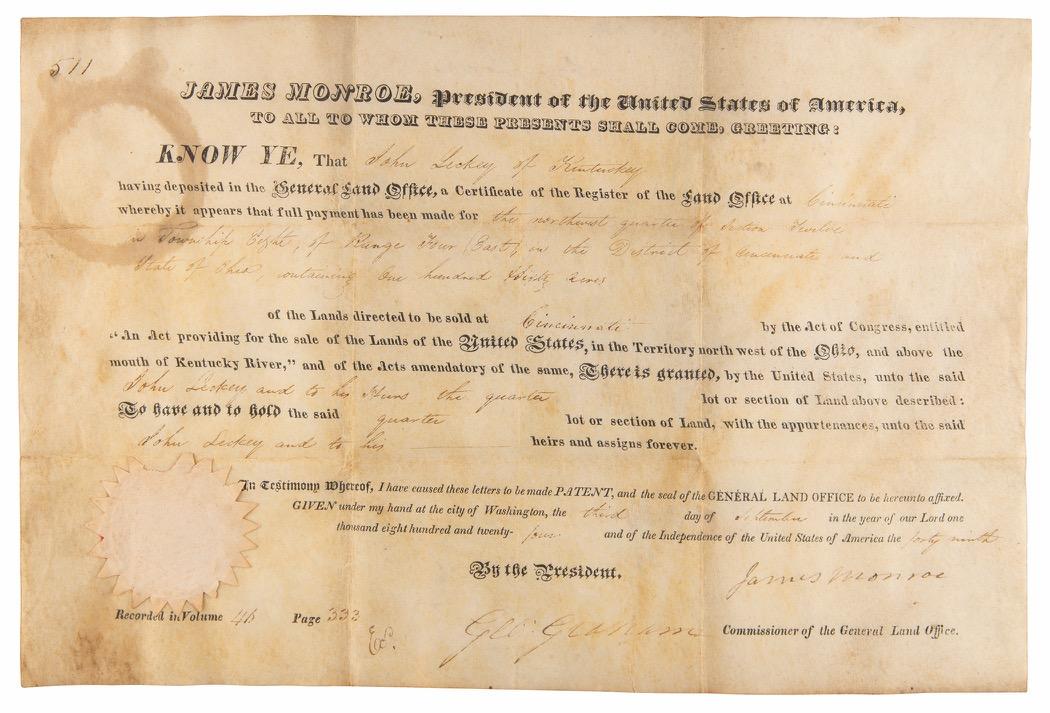 511
JAMES MONROE, President of the United States of America,
TO ALL TO WHOM THESE PRESENTS SHALL COME, GREETING:
KNOW YE, That John Leckey of Kentuckey
having deposited in the General Land Office, a Certificate of the Register of the Land Office at Cincinnati
whereby it appears that full payment has been made for the northwest quarter of Section Twelve
in Township Eight, of Range Four (East), in the District of Cincinnati and
State of Ohio, containing One hundred Sixty acres
of the Lands directed to be sold at Cincinnati by the Act of Congress, entitled
"An Act providing for the sale of the Lands of the United States, in the Territory north west of the Ohio, and above the
mouth of Kentucky River," and of the Acts amendatory of the same, There is granted, by the United States, unto the said
John Leckey and to his Heirs the quarter lot or section of Land above described:
To have and to hold the said quarter lot or section of Land, with the appurtenances, unto the said
John Leckey and to his heirs and assigns forever.
In Testimony Whereof, I have caused these letters to be made PATENT, and the seal of the GENERAL LAND OFFICE to be hereunto affixed.
GIVEN under my hand at the city of Washington, the third day of September in the year of our Lord one
thousand eight hundred and twenty-four and of the Independence of the United States of America the forty ninth
By the President,
James Monroe
Recorded in Volume Page 333
Geo: Graham Commissioner of the General Land Office.